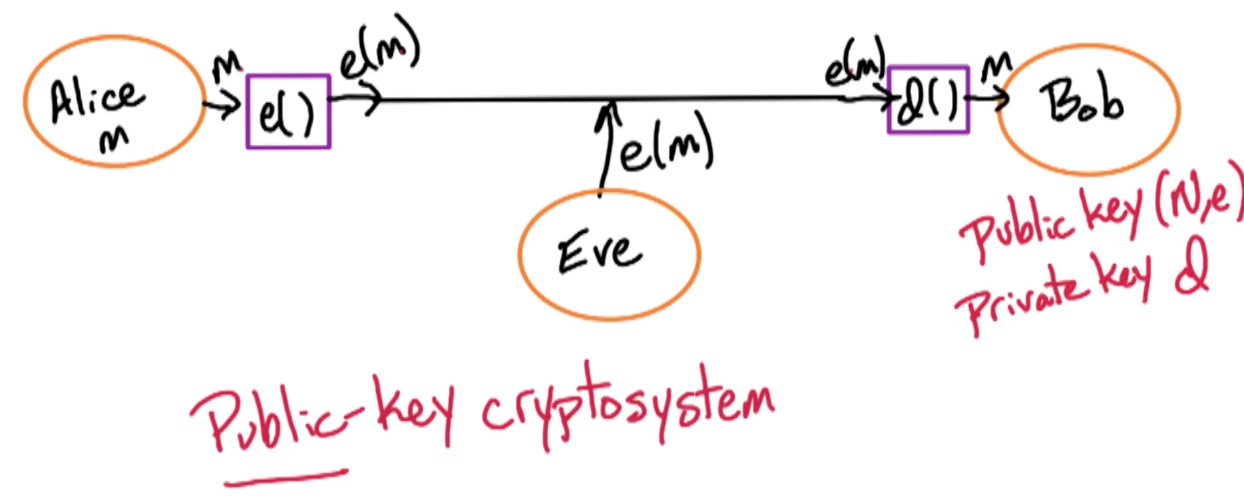 Alice
m
m
e()
e(m)
e(m)
d()
m
Bob
e(m)
Eve
Public key (N,e)
Private key d
Public-key cryptosystem